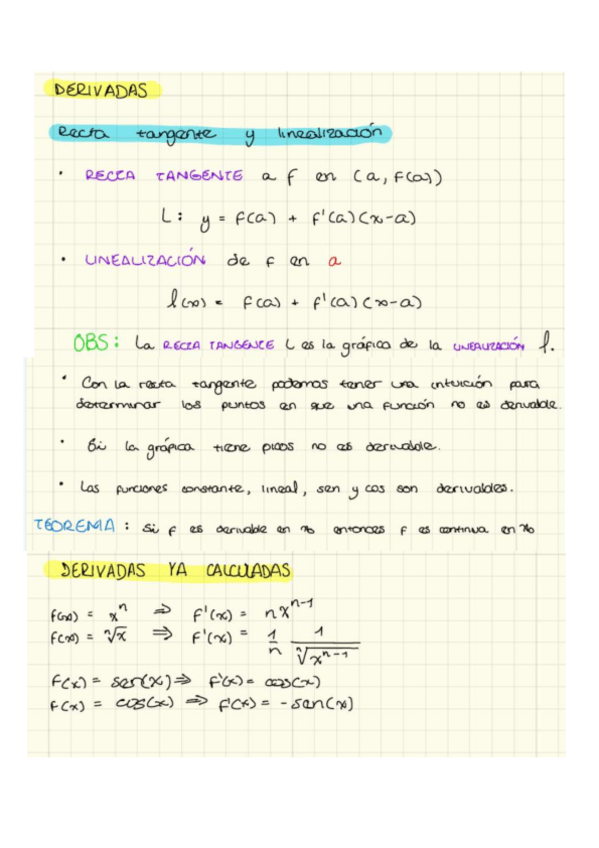 DERIVADAS
Recta tangente y linealización
• RECTA TANGENTE a f en (a, f(a))
L: y = f(a) + f'(a)(x-a)
• LINEALIZACIÓN de f en a
l(x) = f(a) + f'(a)(x-a)
OBS: La RECTA TANGENTE L es la gráfica de la LINEALIZACIÓN l.
• Con la recta tangente podemos tener una intuición para
determinar los puntos en que una función no es derivable.
• Si la gráfica tiene picos no es derivable.
• Las funciones constante, lineal, sen y cos son derivables.
TEOREMA: Si f es derivable en x₀ entonces f es continua en x₀
DERIVADAS YA CALCULADAS
f(x) = xⁿ ⇒ f'(x) = nxⁿ⁻¹
f(x) = ⁿ√x ⇒ f'(x) = 1/n 1/ⁿ√(xⁿ⁻¹)
f(x) = sen(x) ⇒ f'(x) = cos(x)
f(x) = cos(x) ⇒ f'(x) = -sen(x)